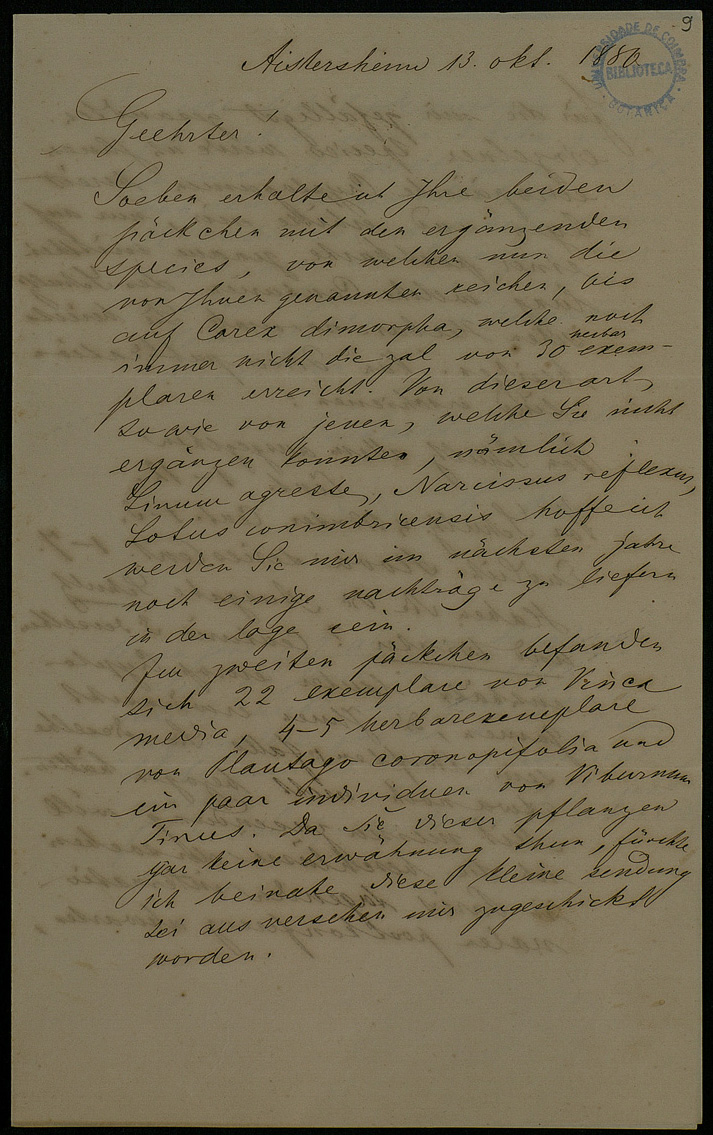 9
UNIVERSIDADE DE COIMBRA
BIBLIOTECA
BOTANICA
Aistersheim 13. okt. 1880
Geehrter!
Soeben erhalte ich Ihre beiden
päckchen mit den ergänzenden
species, von welchen nun die
von Ihnen genannten reichen, bis
auf Carex dimorpha, welche noch
immer nicht die zal von 30 herbar
exem-
plaren erreicht. Von dieser art,
sowie von jenen, welche Sie nicht
ergänzen konnten, nämlich
Linum agreste, Narcissus reflexus,
Lotus conimbricensis hoffe ich
werden Sie mir im nächsten jahre
noch einige nachträge zu liefern
in der lage sein.
Im zweiten päckchen befanden
sich 22 exemplare von Vinca
media, 4-5 herbarexemplare
von Plantago coronopifolia und
ein paar individuen von Viburnum
Tinus. Da Sie dieser pflanzen
gar keine erwähnung thun, fürchte
ich beinahe diese kleine sendung
sei aus versehen mir zugeschickt
worden.